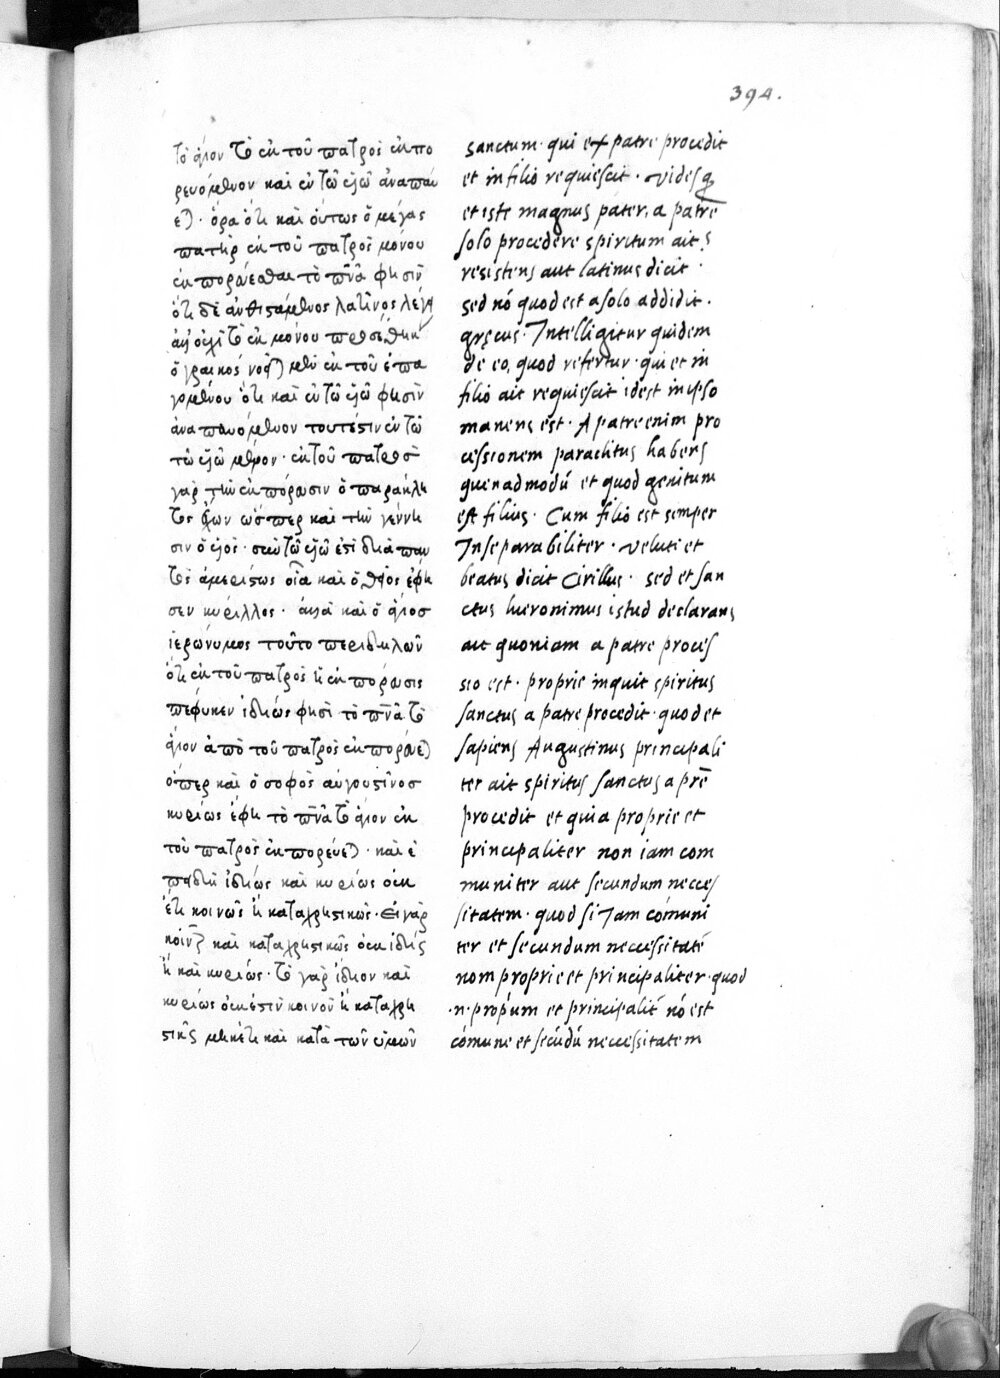 394.
τὸ ἅγιον τὸ ἐκ τοῦ πατρὸς ἐκπο
ρευόμενον καὶ ἐν τῶ υἱῶ ἀναπαυ
ε). ὅρα ὅτι καὶ οὕτως ὁ μέγας
πατὴρ ἐκ τοῦ πατρὸς μόνου
ἐκπορεύεσθαι τὸ πν̅α̅ φησὶν
ὅτι δὲ ἀνθιστάμενος λατῖνος λέγη
ἀλλ' οὐχὶ τὸ ἐκ μόνου προσέθηκ
ὁ γραικός νοεῖ) μὲν ἐκ τοῦ ἐπα
γομένου ὅτι καὶ ἐν τῶ υἱῶ φησὶν
ἀναπαυόμενον τουτέστιν ἐν τῶ
τῶ υἱῶ μένον. ἐκ τοῦ πατρὸσ
γὰρ τὴν ἐκπόρευσιν ὁ παράκλη
τος ἔχων ὥσπερ καὶ τὴν γέννη
σιν ὁ υἱός. σὺν τῶ υἱῶ ἐστὶ διὰ παν
τὸς ἀμερίστως οἷα καὶ ὁ θεῖος ἔφη
σεν κυριλλος. ἀλλὰ καὶ ὁ ἅγιοσ
ἱερώνυμος τοῦτο περιδηλῶν
ὅτι ἐκ τοῦ πατρὸς ἡ ἐκπόρευσις
πέφυκεν ἰδίως φησὶ τὸ πν̅α̅ τὸ
ἅγιον ἀπὸ τοῦ πατρὸς ἐκπορεύε)
ὅπερ καὶ ὁ σοφὸς αὐγουστῖνοσ
κυρίως ἔφη τὸ πν̅α̅ τὸ ἅγιον ἐκ
τοῦ πατρὸς ἐκπορεύε). καὶ ἐ
πειδὴ ἰδίως καὶ κυρίως οὐκ
ἔτι κοινῶς ἢ καταχρηστικῶς. εἰ γὰρ
κοινῶς καὶ καταχρηστικῶς οὐκ ἰδίως
ἢ καὶ κυρίως. τὸ γὰρ ἴδιον καὶ
κυρίως οὐκ ἐστὶν κοινοῦ ἢ καταχρη
στικῶς μηκέτι καὶ κατὰ τῶν ὑμῶν
sanctum. qui ex patre procedit
et in filio requiescit. Vides q̃
et iste magnus pater, a patre
solo procedere spiritum ait.
resistens aut latinus dicit
sed nó quod est a solo addidit.
gręcus. Intelligitur quidem
de eo, quod refertur. qui et in
filio ait requiescit idest in ipso
manens est. A patre enim pro
cessionem paraclitus habens
quenadmodú et quod genitum
est filius. Cum filio est semper
Inseparabiliter. veluti et
beatus dicit Cirillus. sed et san
ctus hieronimus istud declarans
ait quoniam a patre proces
sio est. proprie inquit spiritus
sanctus a patre procedit. quod et
sapiens Augustinus principali
ter ait spiritus sanctus a prē
procedit et quia proprie et
principaliter non iam com
muniter aut secundum necces
sitatem. quod si Jam cómuni
ter et secundum neccessitaté
nom proprie et principaliter. quod
.n. propíum et principalit́ nó est
cómune et secúdú neccessitatem